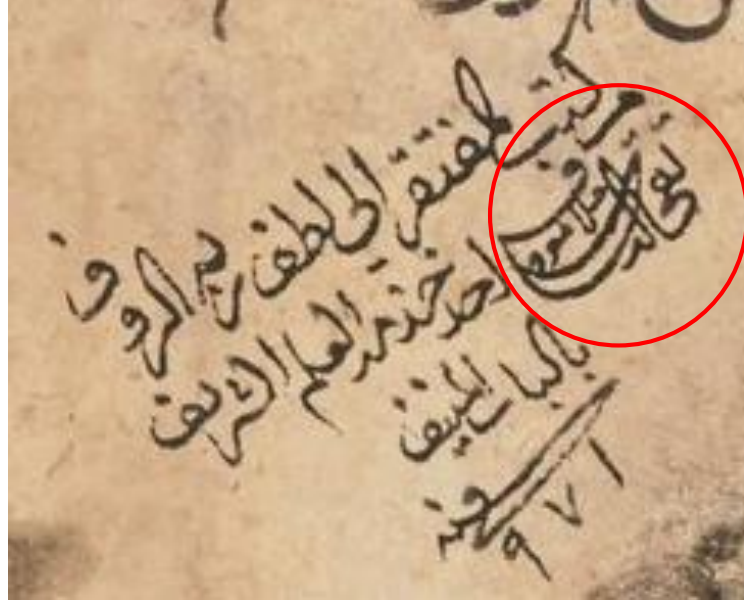 من كتب المفتقر الى لطف ربه الرووف
تقي الدين معروف احد خدمة العلم الشريف
بالباب المنيف
سنة
٩٧١